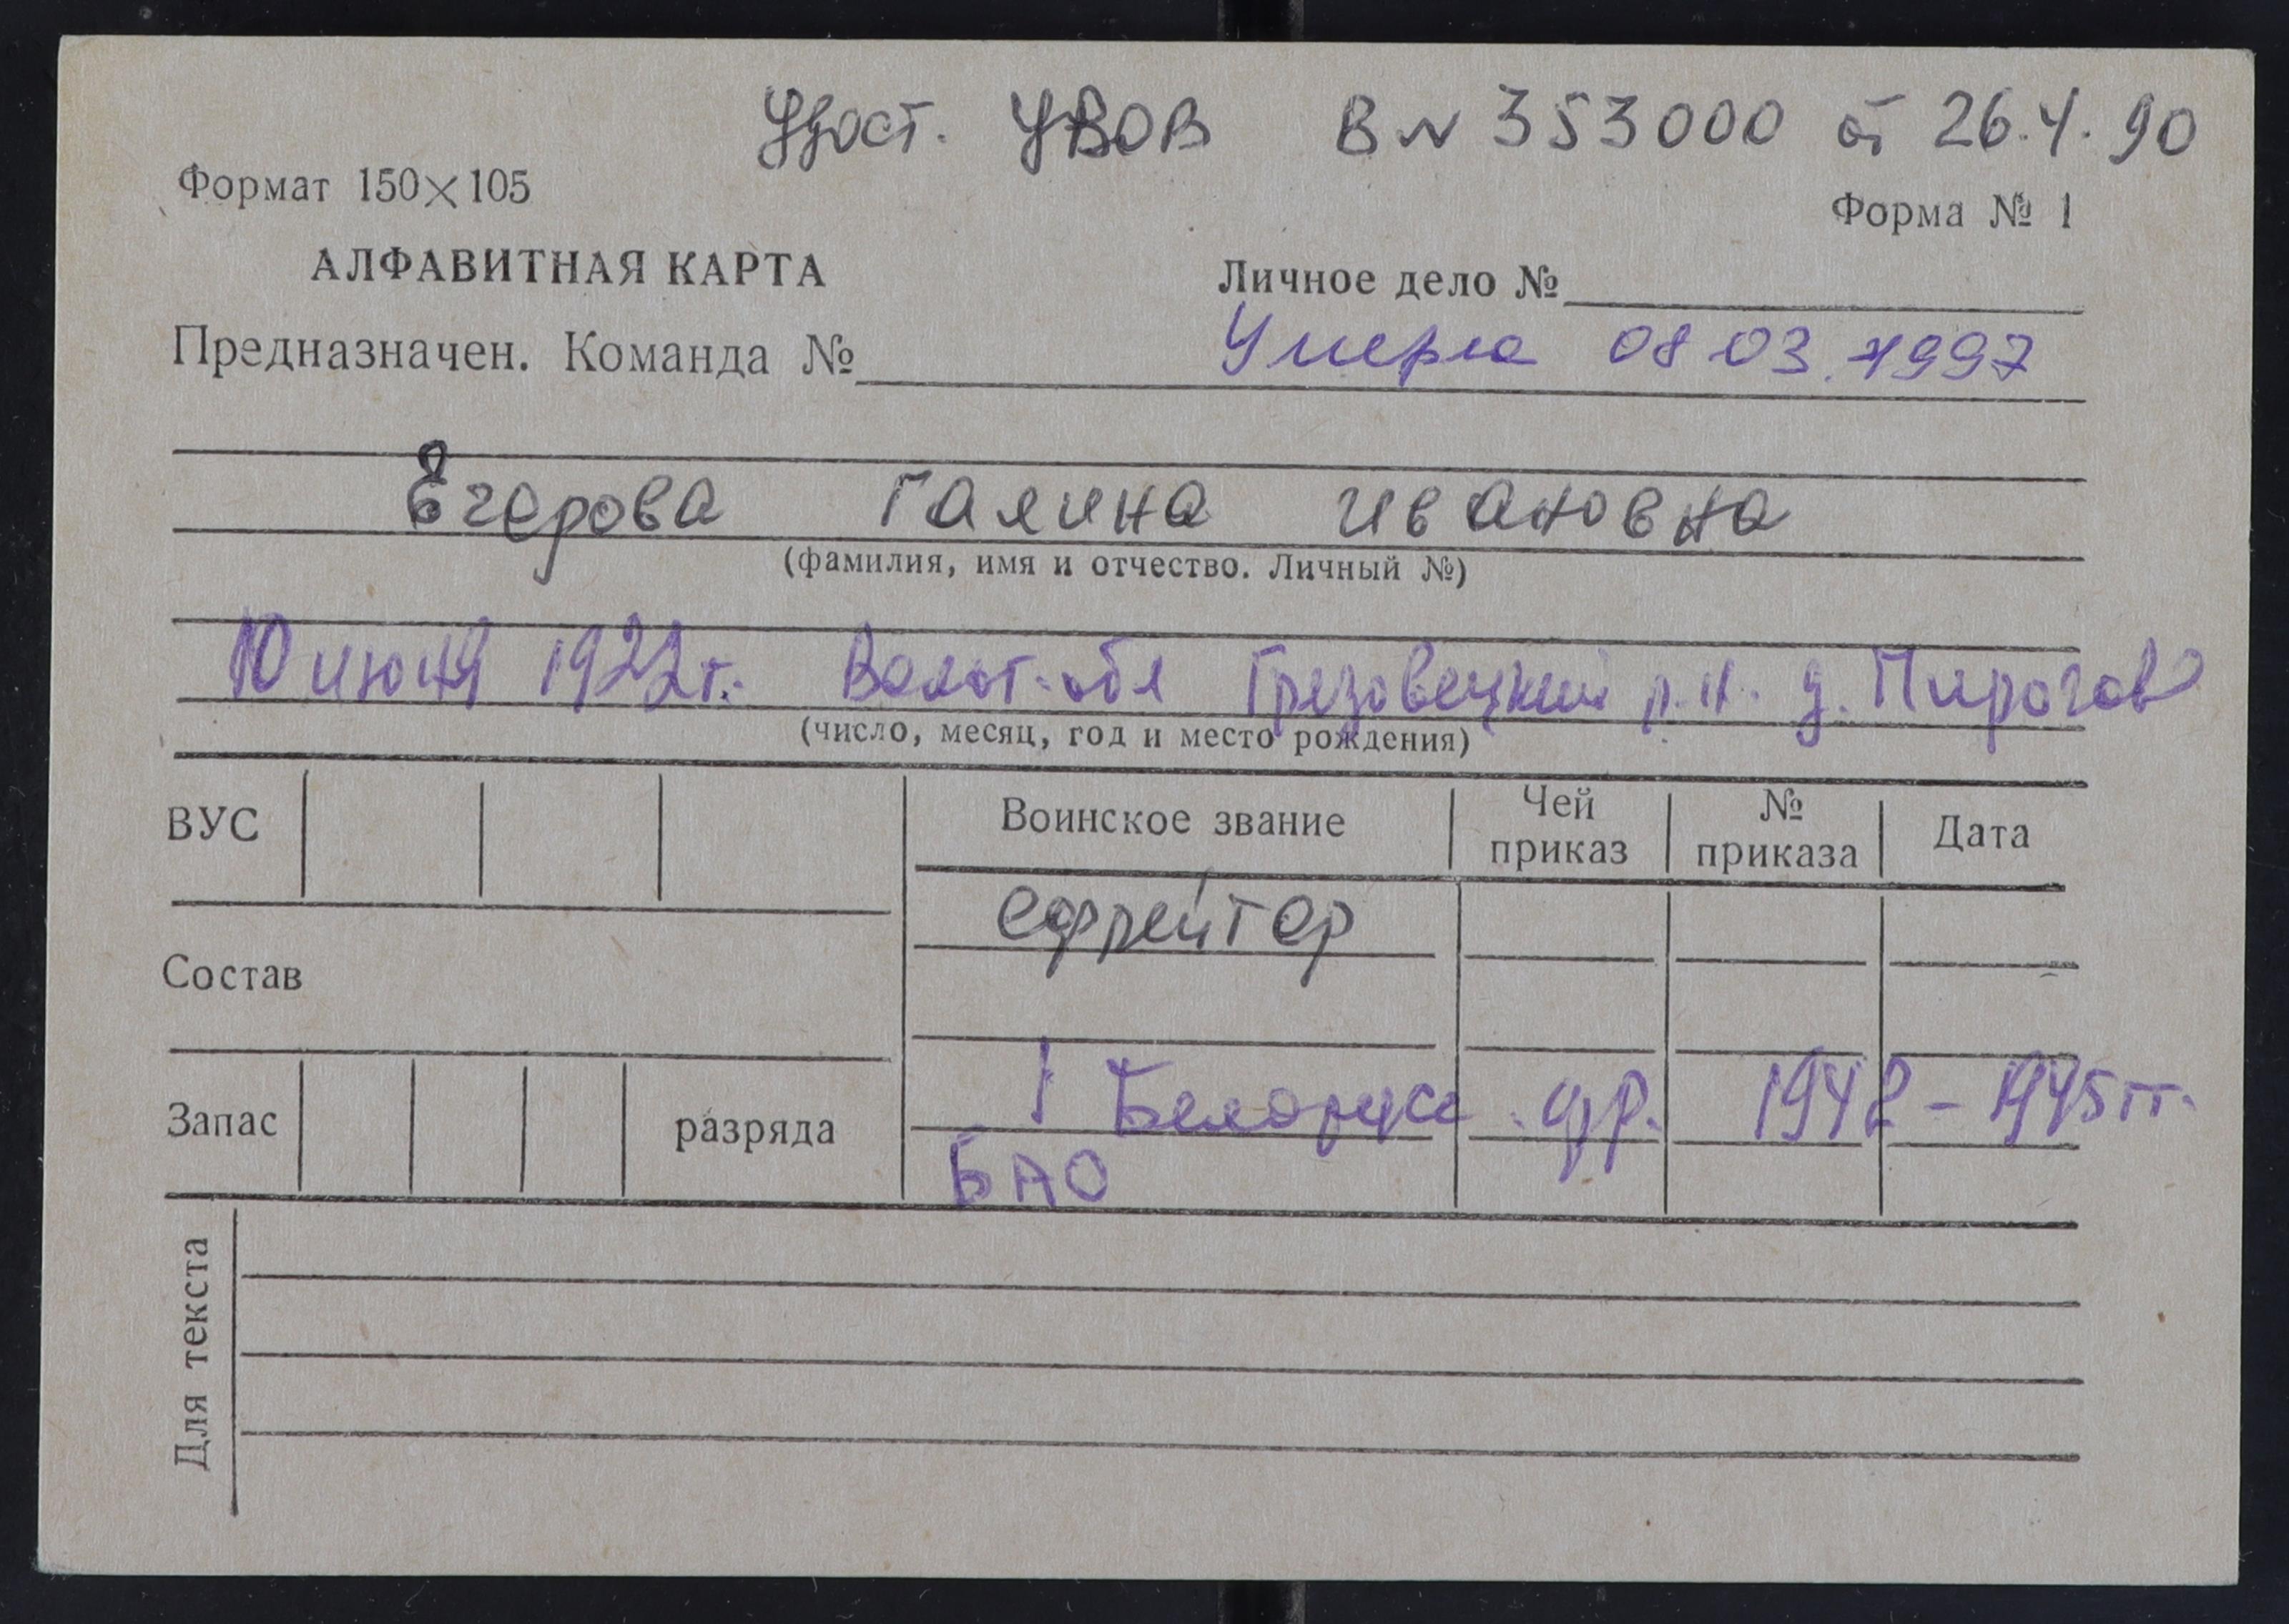 Удост. УВОВ В № 353000 от 26.4.90
Формат 150×105
Форма № 1
АЛФАВИТНАЯ КАРТА
Личное дело №
Предназначен. Команда № Умерла 08.03.1997
Егерова Галина Ивановна
(фамилия, имя и отчество. Личный №)
10 июня 1922г. Волог. обл Грязовецкий р.н. д. Пирогово
(число, месяц, год и место рождения)
ВУС
Воинское звание
Чей приказ
№ приказа
Дата
ефрейтор
Состав
I Белорусс. фр. 1942 - 1945 гг.
Запас
разряда
БАО
Для текста